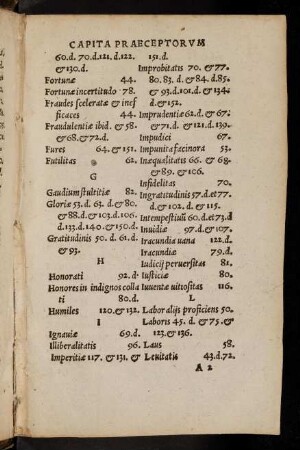 CAPITA PRAECEPTORVM
60.d. 70.d.121.d.122.
&130.d.
Fortunæ 44.
Fortunæ incertitudo 78.
Fraudes sceleratæ & inef
ficaces 44.
Fraudulentiæ ibid. &58
&68.&72.d.
Fures 64. &151.
Futilitas 62.
G
Gaudium stultitiæ 82.
Gloriæ 53.d. 63.d. &80
&88.d. &103.d.106.
d.133.d.140.&150.d.
Gratitudinis 50.d. 61.d.
&93.
H
Honorati 92.d.
Honores in indignos colla
ti 80.d.
Humiles 120.&132.
I
Ignauiæ 69.d.
Illiberalitatis 96.
Imperitiæ 117. &131. &
151.d.
Improbitatis 70. &77.
80. 83. d. &84.d.85.
&93.d.101.d. &134.
d.&152.
Imprudentiæ 62.d. &67.
&71.d. &121.d.139.
Impudici 67.
Impunita facinora 53.
Inæqualitatis 66. &68.
&89. &106.
Infidelitas 70.
Ingratitudinis 57.d.&77.
d.&102. d. &115.
Intempestiuū 60.d.&73.d
Inuidiæ 97.d.&107.
Iracundia uana 122.d.
Iracundiæ 79.d.
Iudicij peruersitas 81.
Iusticiæ 80.
Iuuentæ uittositas 116.
L
Labor alijs proficiens 50.
Laboris 45. d. &75.&
123.&136.
Laus 58.
Leuitatis 43.d.72.
A 2